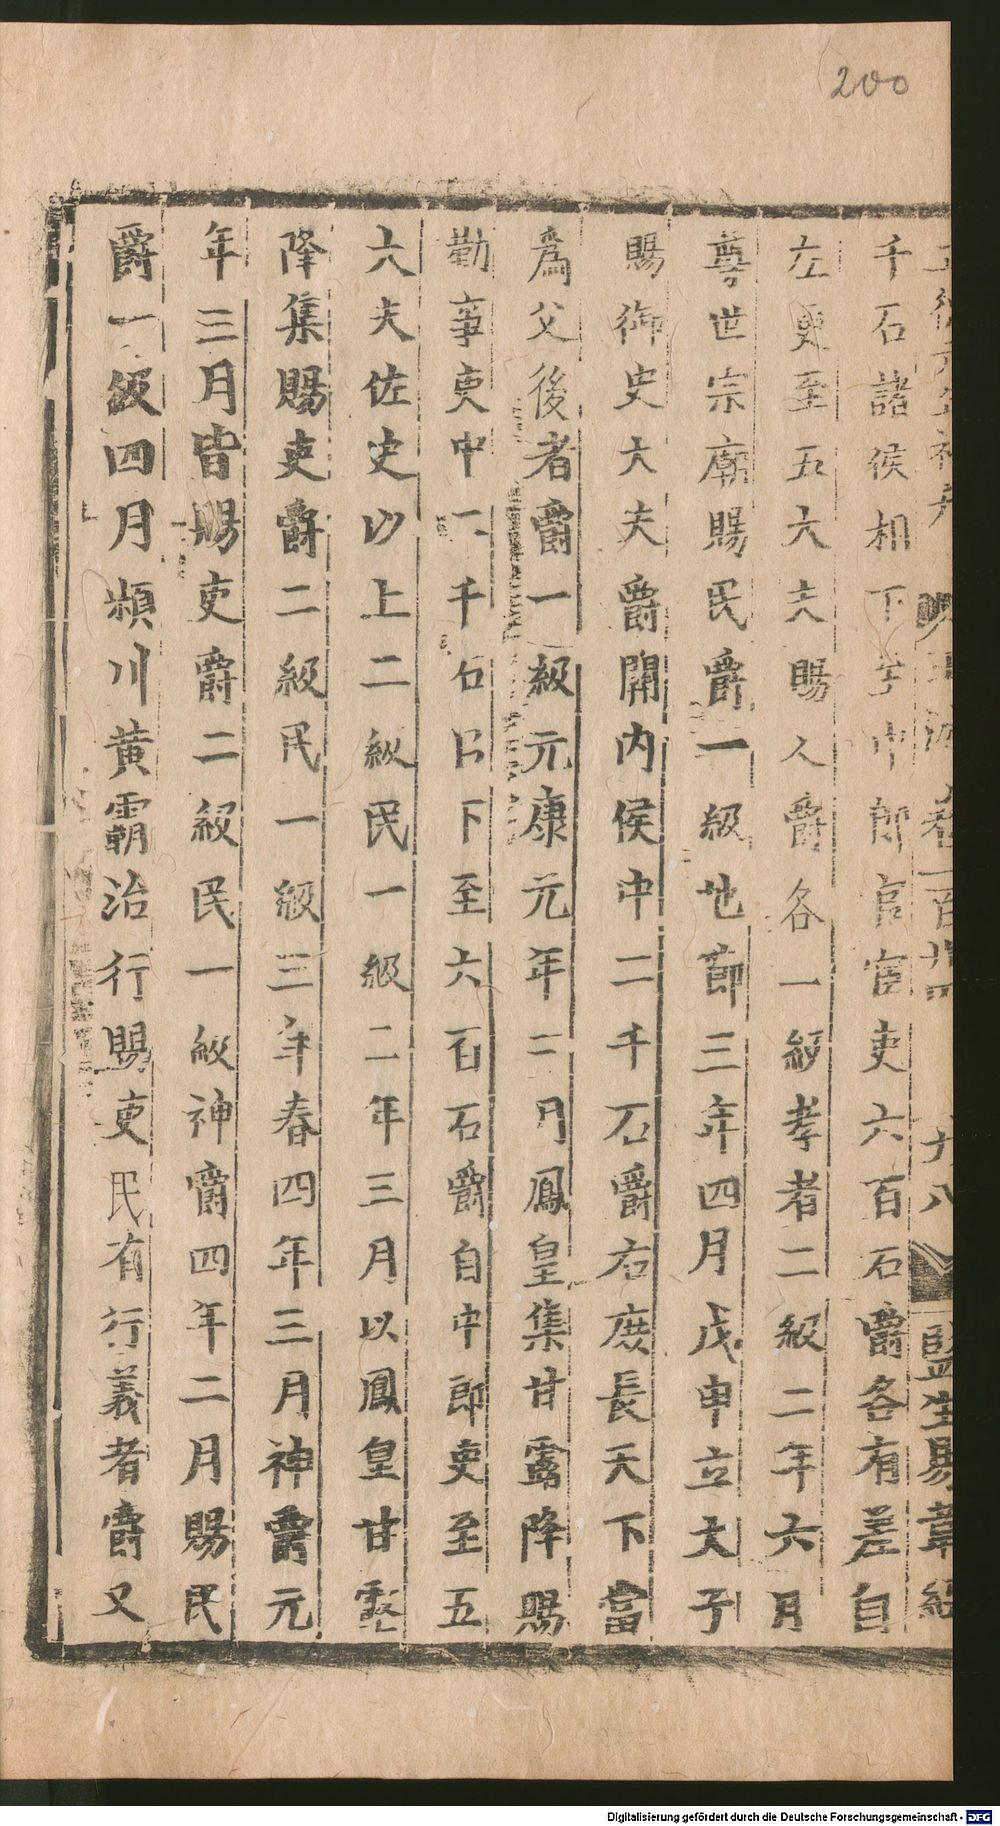 200
千石諸侯相下 中郎官宦吏六百石爵各有差自
左更至五大夫賜人爵各一級孝者二級二年六月
尊世宗廟賜民爵一級地節三年四月戊申立太子
賜御史大夫爵關内侯中二千石爵右庶長天下當
爲父後者爵一級元康元年二月鳳皇集甘露降賜
勤事吏中二千石以下至六百石爵自中郎吏至五
大夫佐史以上二級民一級二年三月以鳳皇甘露
降集賜吏爵二級民一級三年春四年三月神爵元
年三月皆賜吏爵二級民一級神爵四年二月賜民
爵一級四月頴川黄霸治行賜吏民有行義者爵又
卷一百 十八 監生 韋
Digitalisierung gefördert durch die Deutsche Forschungsgemeinschaft - DFG